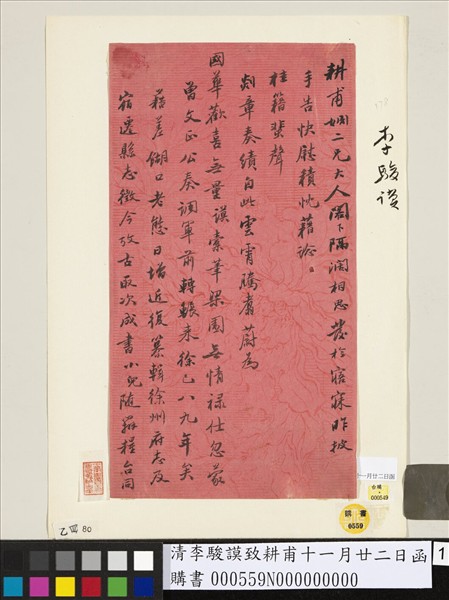 耕甫姻二兄大人閣下隔濶相思發於寤寐昨披
手告快慰積忱藉諗
桂籍蜚聲
剡章奏績自此雲霄騰翥蔚為
國華歡喜無量謨橐筆梁園無情祿仕忽蒙
曾文正公奏調軍前轉餉來徐已八九年矣
藉差餬口老態日增近復纂輯徐州府志及
宿遷縣志徵今攷古取次成書小兒隨
李駿謨
一月廿二日函
000549
購書
0559
乙Ⅷ 80
清李駿謨致耕甫十一月廿二日函
購書 000559N000000000
1